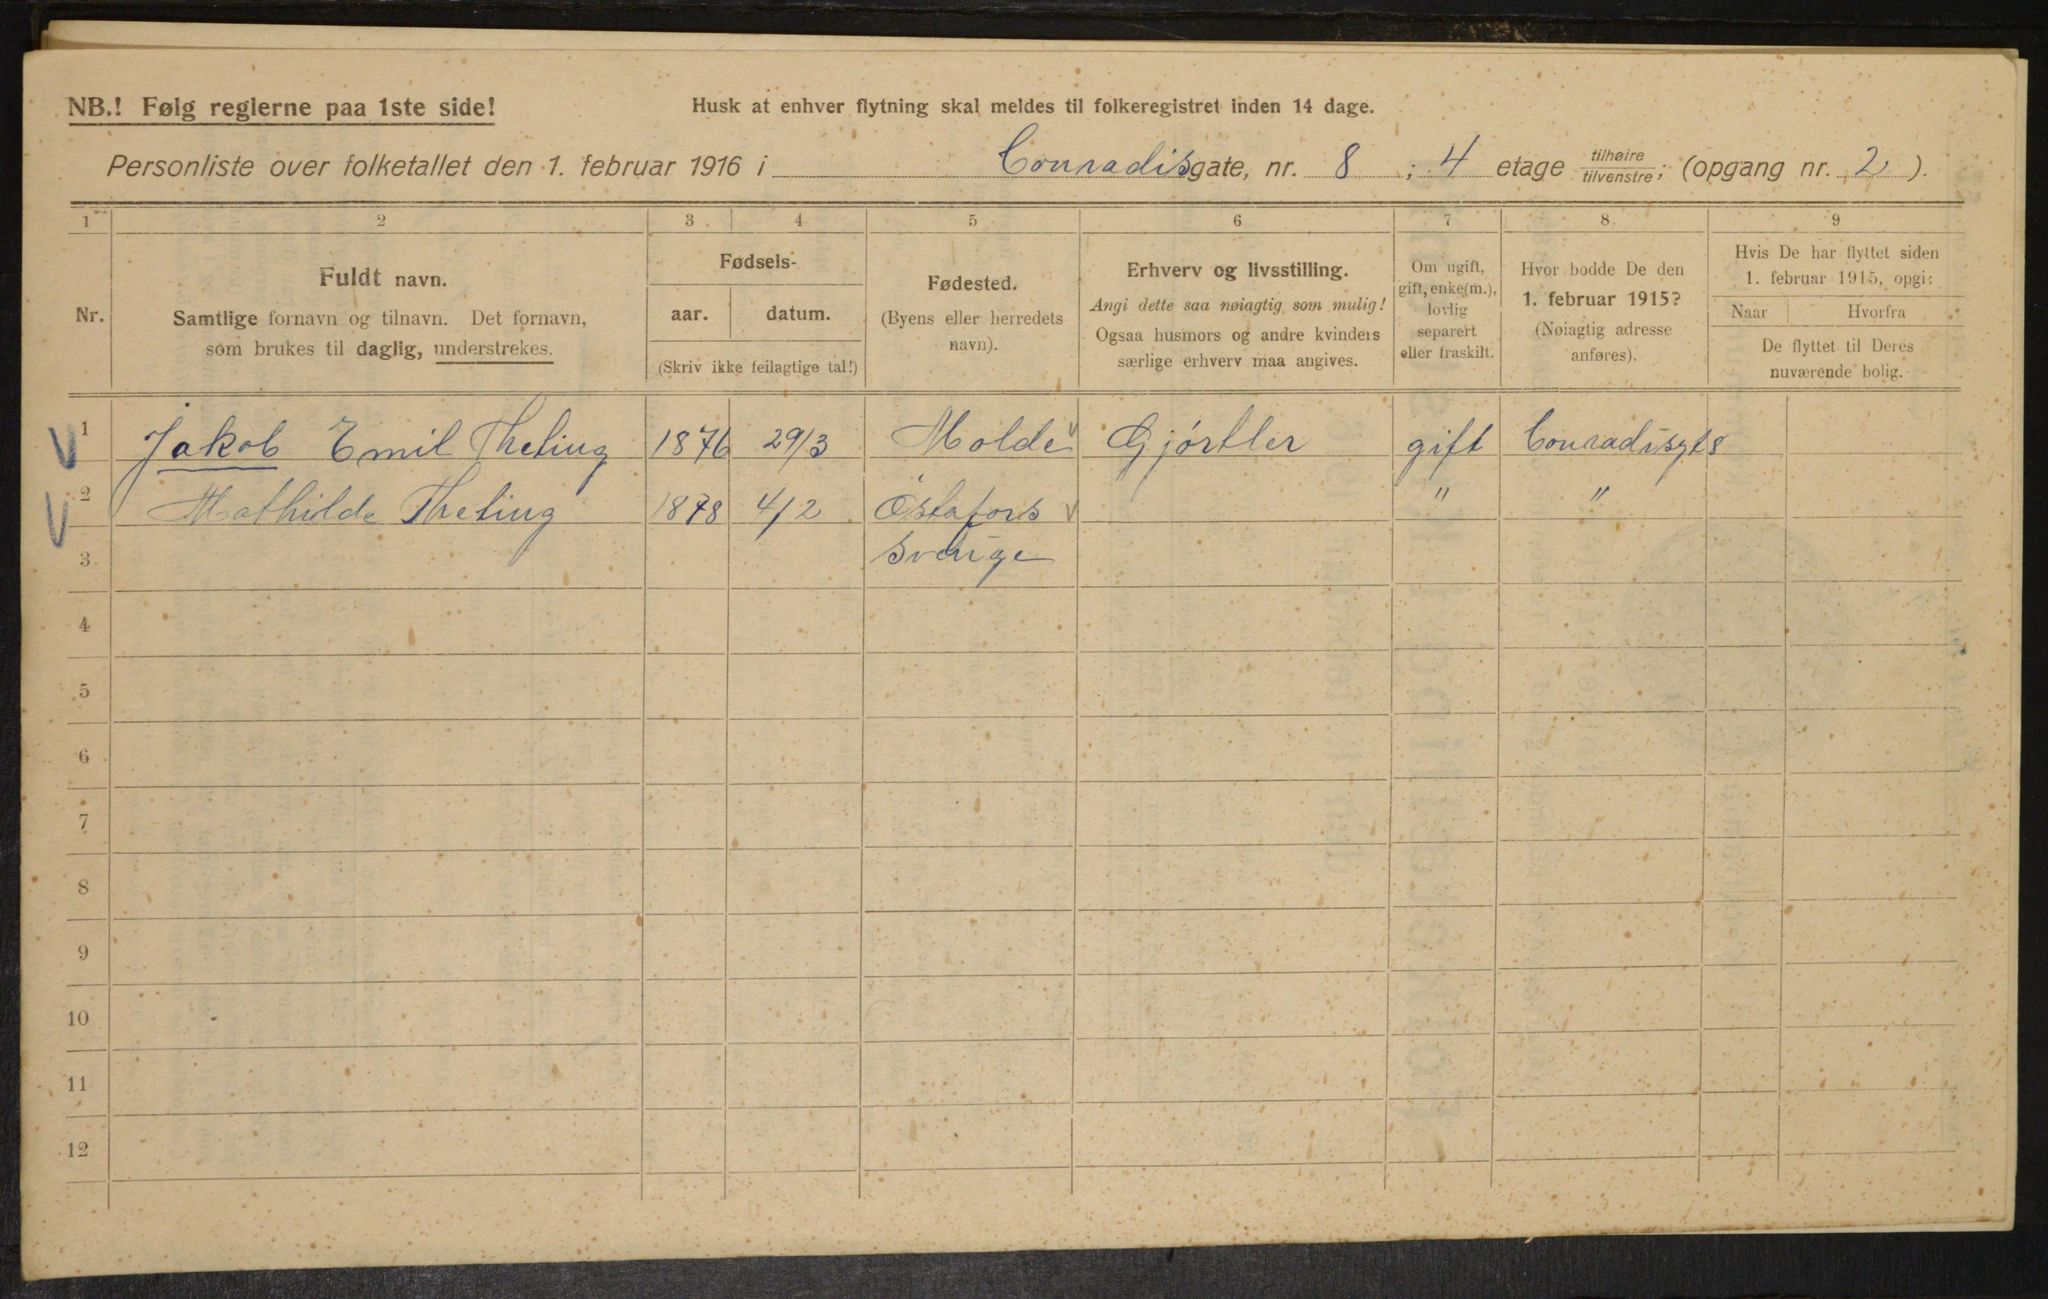 NB.! Følg reglerne paa 1ste side!
Husk at enhver flytning skal meldes til folkeregistret inden 14 dage.
Personliste over folketallet den 1. februar 1916 i Conradisgate, nr. 8 ; 4 etage tilhøire/tilvenstre; (opgang nr. 2 ).
1 2 3 4 5 6 7 8. 9
Nr.
Fuldt navn.
Samtlige fornavn og tilnavn. Det fornavn,
som brukes til daglig, understrekes.
Fødsels-
aar. datum.
(Skriv ikke feilagtige tal!)
Fødested.
(Byens eller herredets
navn).
Erhverv og livsstilling.
Angi dette saa nøiagtig som mulig!
Ogsaa husmors og andre kvinders
særlige erhverv maa angives.
Om ugift,
gift, enke(m.),
lovlig
separert
eller fraskilt.
Hvor bodde De den
1. februar 1915?
(Nøiagtig adresse
anføres).
Hvis De har flyttet siden
1. februar 1915, opgi:
Naar Hvorfra
De flyttet til Deres
nuværende bolig.
1 Jakob Emil Theting 1876 29/3 Molde Gjørtler gift Conradisgt 8
2 Mathilde Theting 1878 4/2 Östafors " "
3 Sverige
4
5
6
7
8
9
10
11
12